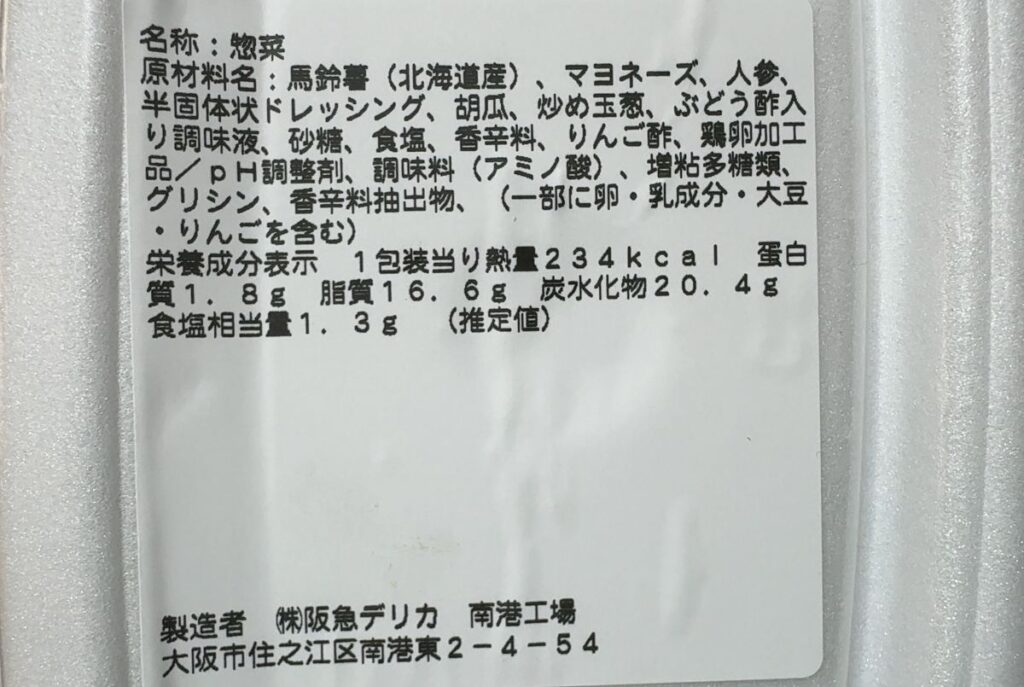 名称：惣菜
原材料名：馬鈴薯（北海道産）、マヨネーズ、人参、
半固体状ドレッシング、胡瓜、炒め玉葱、ぶどう酢入
り調味液、砂糖、食塩、香辛料、りんご酢、鶏卵加工
品／ｐＨ調整剤、調味料（アミノ酸）、増粘多糖類、
グリシン、香辛料抽出物、（一部に卵・乳成分・大豆
・りんごを含む）
栄養成分表示　１包装当り熱量２３４ｋｃａｌ　蛋白
質１．８ｇ　脂質１６．６ｇ　炭水化物２０．４ｇ
食塩相当量１．３ｇ　（推定値）
製造者　㈱阪急デリカ　南港工場
大阪市住之江区南港東２－４－５４